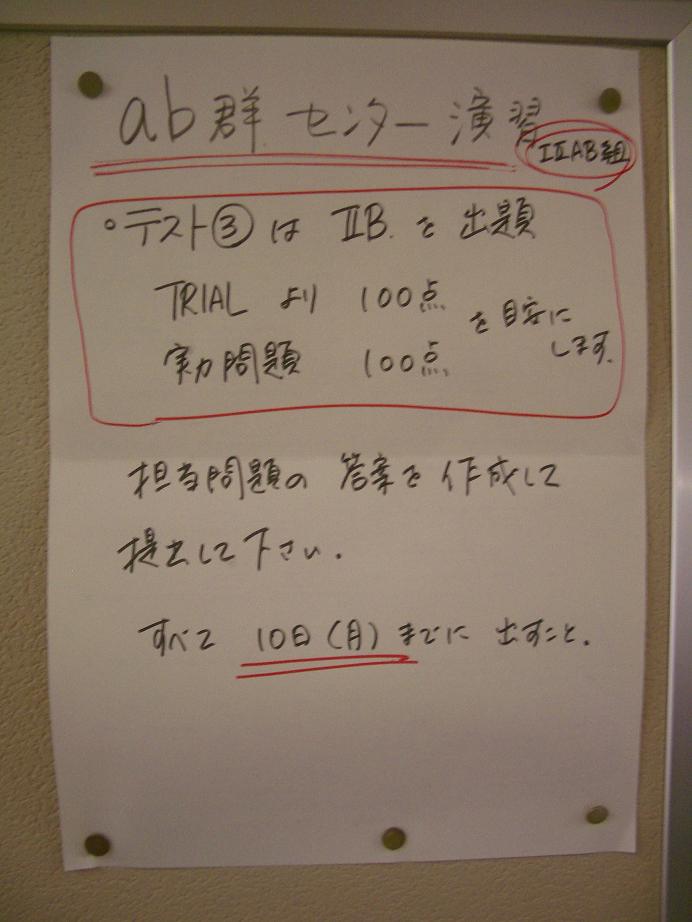 ab群 センター演習
ⅠⅡAB組
・テスト③は ⅡB を 出題
TRIAL より 100点
実力問題 100点
を目安に
します。
担当問題の 答案を 作成して
提出して下さい.
すべて 10日(月)までに 出すこと.